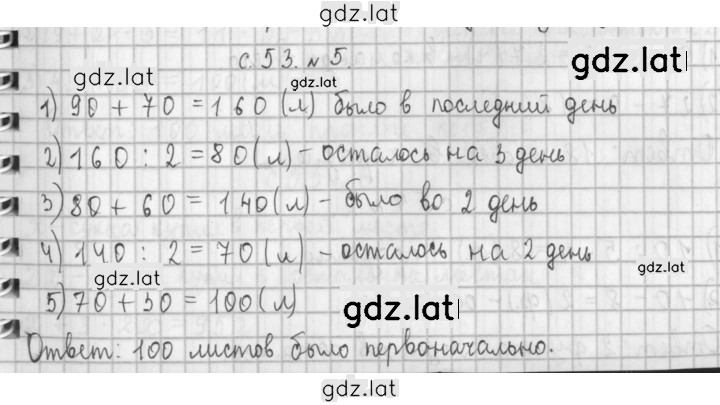 gdz.lat
с. 53. № 5.
gdz.lat
gdz.lat
gdz.lat
1) 90 + 70 = 160 (л) было в последний день
2) 160 : 2 = 80 (л) - осталось на 3 день
3) 80 + 60 = 140 (л) - было во 2 день
4) 140 : 2 = 70 (л) - осталось на 2 день
gdz.lat
gdz.lat
5) 70 + 30 = 100 (л)
gdz.lat
Ответ: 100 листов было первоначально.
gdz.lat